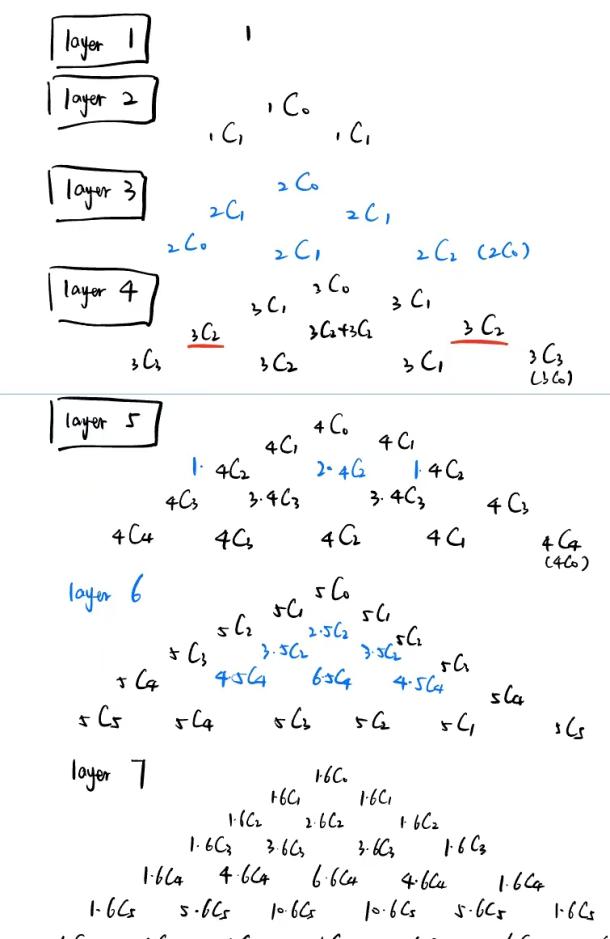 layer 1 1
layer 2
1C0
1C1 1C1
layer 3 2C0
2C1 2C1
2C0 2C1 2C2 (2C0)
layer 4 3C0
3C1 3C1
3C2 3C2+3C2 3C2
3C3 3C2 3C1 3C3
(3C0)
layer 5 4C0
4C1 4C1
1· 4C2 2·4C2 1·4C2
4C3 3·4C3 3·4C3 4C3
4C4 4C3 4C2 4C1 4C4
(4C0)
layer 6 5C0
5C1 5C1
5C2 2·5C2 5C2
5C3 3·5C2 3·5C2 5C3
5C4 4·5C4 6·5C4 4·5C4 5C4
5C5 5C4 5C3 5C2 5C1 5C5
layer 7 1·6C0
1·6C1 1·6C1
1·6C2 2·6C2 1·6C2
1·6C3 3·6C3 3·6C3 1·6C3
1·6C4 4·6C4 6·6C4 4·6C4 1·6C4
1·6C5 5·6C5 10·6C5 10·6C5 5·6C5 1·6C5